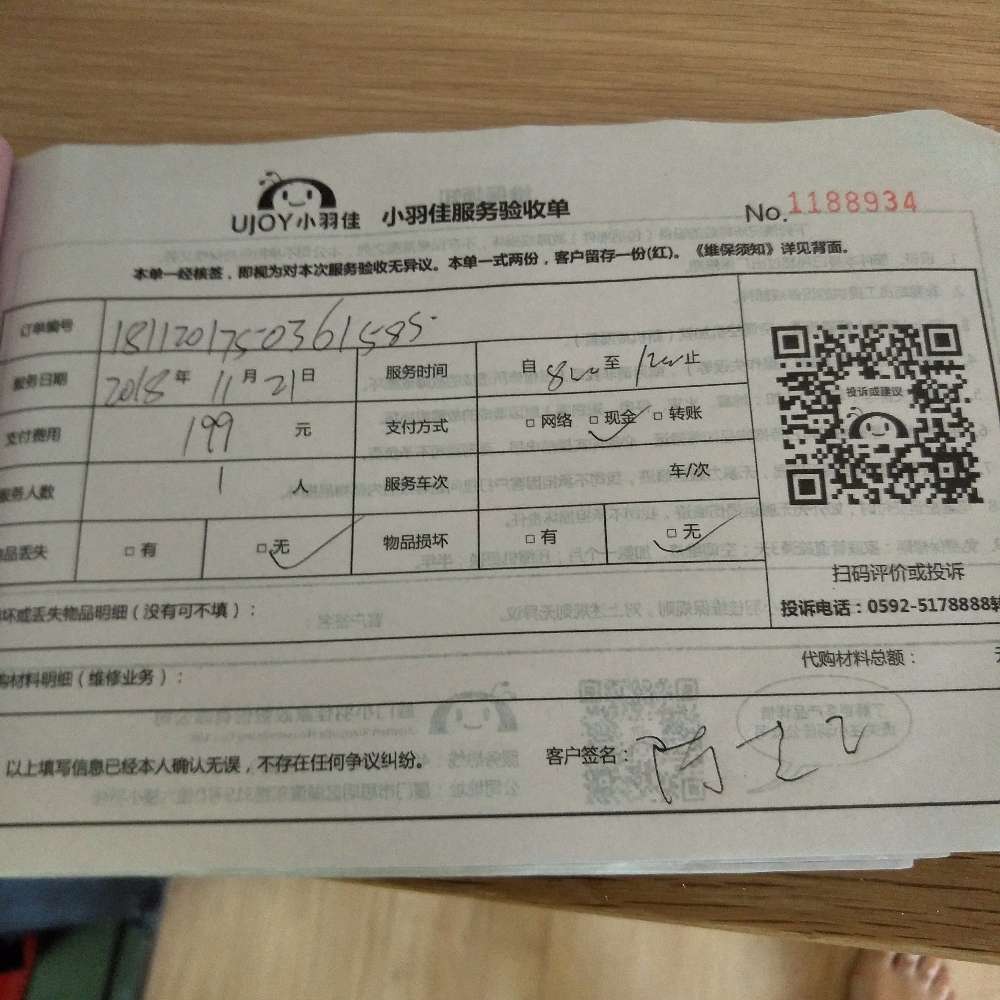 UJOY小羽佳 小羽佳服务验收单 No.1188934
本单一经核签，即视为对本次服务验收无异议。本单一式两份，客户留存一份(红)。《维保须知》详见背面。
订单编号 1811201750361585
服务日期 2018年11月21日 服务时间 自800至1200止
支付费用 199元 支付方式 □网络 □现金 □转账
服务人数 1人 服务车次 车/次
品丢失 □有 □无 物品损坏 □有 □无
投诉或建议
扫码评价或投诉
投诉电话：0592-5178888转
坏或丢失物品明细（没有可不填）：
购材料明细（维修业务）： 代购材料总额：
以上填写信息已经本人确认无误，不存在任何争议纠纷。 客户签名：